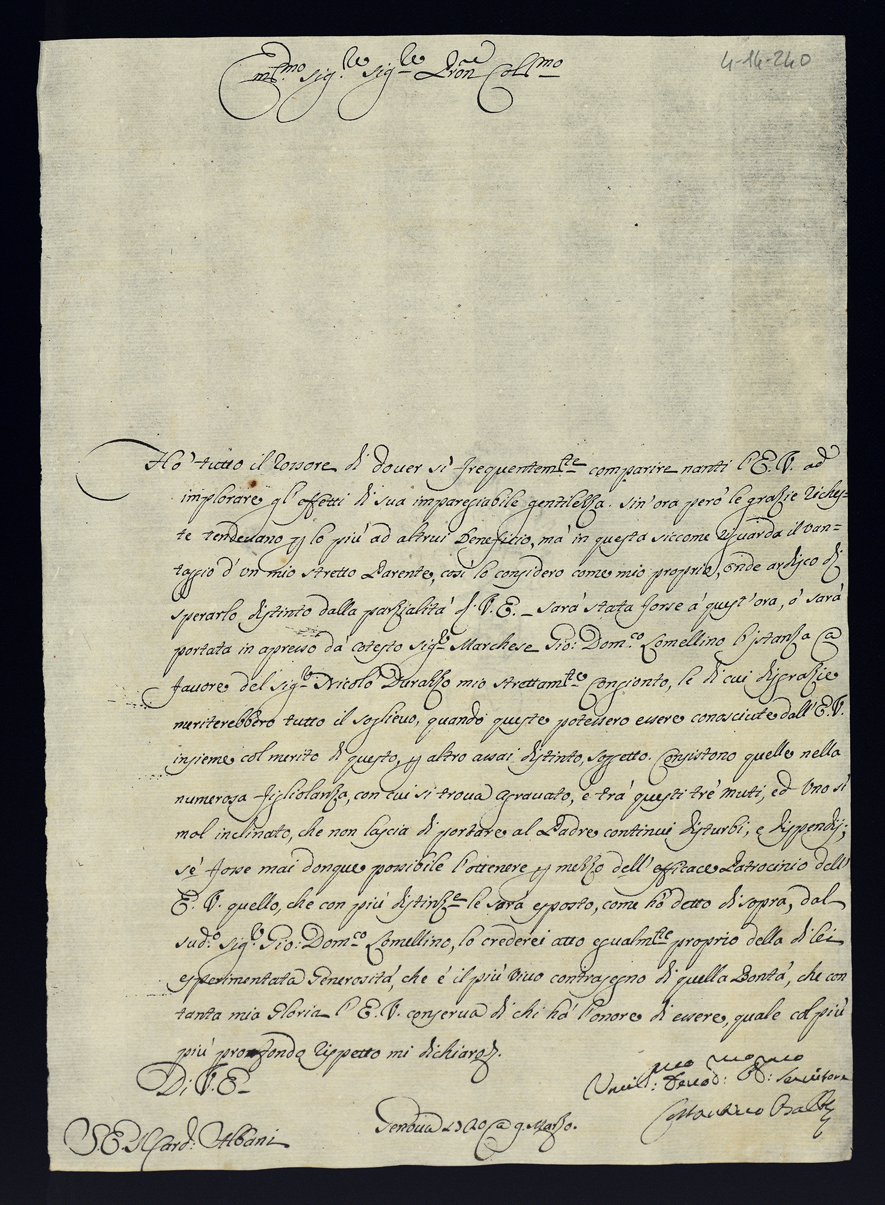 4-14-240
Em.mo Sig.re Sig.re Pron Col.mo
Ho' tutto il rossore di dover sì frequentem.te comparire nanti l'E.V. ad
implorare gl'effetti di sua impareggiabile gentilezza. Sin'ora però le grazie riches-
te tendevano p lo più ad altrui beneficio, mà in questa siccome riguarda il van-
taggio d'un mio stretto Parente, così lo considero come mio proprio, onde ardisco di
sperarlo distinto dalla parzialità di V.E. Sarà stata forse à quest'ora, ò sarà
portata in apresso dà cotesto Sig.r Marchese Gio: Dom.co Lomellino l'istanza a
favore del Sig.r Nicolò Durazzo mio strettam.te Congionto, le di cui disgrazie
meriterebbero tutto il soglievo, quando queste potessero essere conosciute dall'E.V.
insieme col merito di questo, p altro assai distinto, soggetto. Consistono quelle nella
numerosa figliolanza, con cui si trova agravato, e trà questi trè muti, ed uno sì
mal inclinato, che non lascia di portare al Padre continui disturbi, e dispendij;
sè forse mai donque possibile l'ottenere p mezzo dell'efficace Patrocinio dell'
E.V. quello, che con più distinz.e le sarà esposto, come hò detto di sopra, dal
sud.o Sig.r Gio: Dom.co Lomellino, lo crederei atto egualm.te proprio della di lei
esperimentata Generosità, che è il più vivo contrasegno di quella Bontà, che con
tanta mia Gloria l'E.V. conserva di chi hà l'onore di essere, quale col più
più profondo rispetto mi dichiaro.
Di V.E.
Umil:mo Devod:mo Ob:mo Servitore
Costantino Balbi
Genova 9. Marzo.
S.E. Il Card: Albani